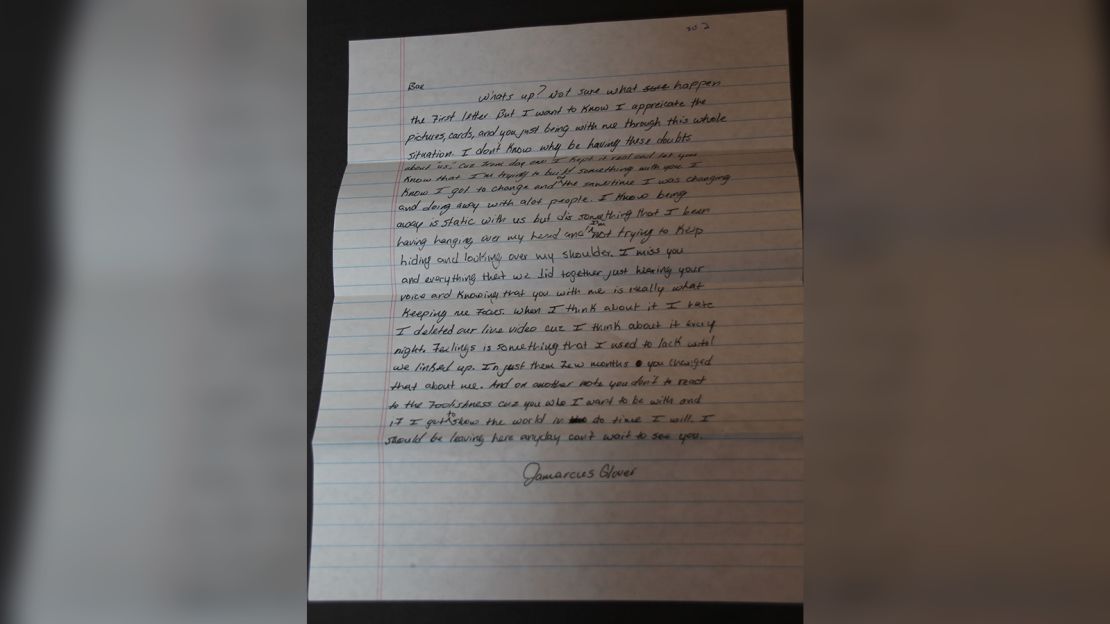 Bae
Whats up? Not sure what happen
the first letter But I want to know I appreicate the
pictures, cards, and you just being with me through this whole
situation. I don't know why be having these doubts
about "us," cuz from day one I kept it real and let you
know that I'm trying to build something with you I
know I got to change and at the sametime I was changing
and doing away with alot people. I know being
away is static with us but dis something that I been
having hanging over my head and I'm not trying to keep
hiding and looking over my shoulder. I miss you
and everything that we did together just hearing your
voice and knowing that you with me is really what
keeping me focus. When I think about it I hate
I deleted our live video cuz I think about it every
night. Feelings is something that I used to lack until
we linked up. In just them few months you changed
that about me. And on another note you don't to react
to the foolishness cuz you who I want to be with and
if I got to show the world in do time I will. I
should be leaving here anyday can't wait to see you.
Jamarcus Glover